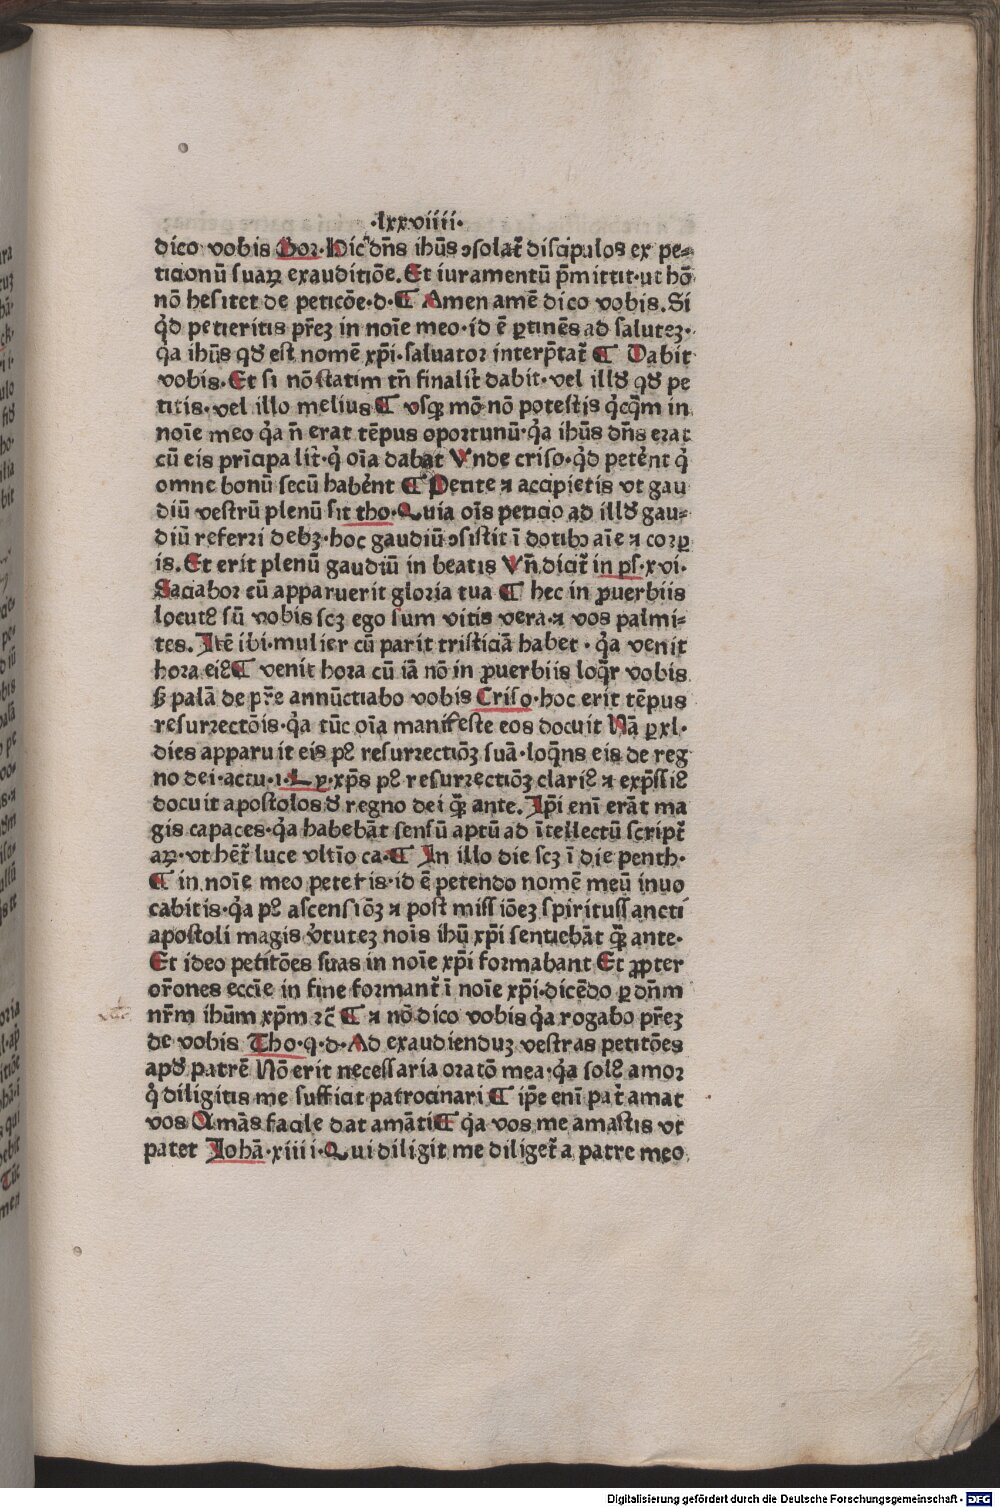 ·lxxviiii·
dico vobis Gor·Hic dn̄s ihūs ɔsolat̄ discipulos ex pe⸗
ticionū suaꝝ exauditiōe. Et iuramentū p̄mittit·ut hō
nō hesitet de peticōe·d·¶ Amen amē dico vobis. Si
qd̄ petieritis pr̄eꝫ in noīe meo·id ē ꝑtinēs ad saluteꝫ·
q̄a ihūs qd̄ est nomē xp̄i·saluator interp̄tat̄ ¶ Dabit
vobis·Et si nō statim tn̄ finalit̄ dabit·vel illd̄ qd̄ pe
titis·vel illo melius ¶ vsqꝫ mō nō potestis q̄cq̄m in
noīe meo q̄a n̄ erat tēpus oportunū·q̄a ihūs dn̄s erat
cū eis prīcipalit̄·q̄ oīa dabat Vnde criso·qd̄ petēnt q̄
omne bonū secū habēnt ¶ Petite ⁊ accipietis vt gau
diū vestrū plenū sit tho·Quia oīs peticio ad illd̄ gau⸗
diū referri debꝫ·hoc gaudiū ɔsistit ī dotibꝫ aīe ⁊ corꝑ
is. Et erit plenū gaudiū in beatis Vn̄ dicit̄ in ps̄·xvi·
Saciabor cū apparuerit gloria tua ¶ hec in ꝓuerbiis
locutꝰ sū vobis scꝫ ego sum vitis vera·⁊ vos palmi⸗
tes. Itē ibi·mulier cū parit tristiciā habet·q̄a venit
hora eiꝰ ¶ venit hora cū iā nō in ꝓuerbiis loqr̄ vobis
sꝫ palā de pr̄e annūctiabo vobis Criso·hoc erit tēpus
resurrectōis·q̄a tūc oīa manifeste eos docuit Nā ꝑ xl·
dies apparuit eis pꝰ resurrectiōꝫ suā·loqn̄s eis de reg
no dei·actu·i·Ly·xp̄s pꝰ resurrectiōꝫ clariꝰ ⁊ exp̄ssiꝰ
docuit apostolos d̄ regno dei qꝫ̄ ante. Ip̄i enī erāt ma
gis capaces·q̄a habebāt sensū aptū ad ītellectū script̄
aꝝ·vt hēt̄ luce vltīo ca·¶ In illo die scꝫ ī die penth·
¶ in noīe meo petetis·id ē petendo nomē meū inuo
cabitis·q̄a pꝰ ascensiōꝫ ⁊ post missiōeꝫ spiritussancti
apostoli magis v̄tuteꝫ noīs ihū xp̄i sentiebāt qꝫ̄ ante·
Et ideo petitōes suas in noīe xp̄i formabant Et ꝓpter
or̄ones eccīe in fine formant̄ ī noīe xp̄i·dicēdo ꝑ dn̄m
nr̄m ihūm xp̄m ⁊c̄ ¶ ⁊ nō dico vobis q̄a rogabo pr̄eꝫ
de vobis Tho·q·d·Ad exaudienduꝫ vestras petitōes
apd̄ patrē Nō erit necessaria oratō mea·q̄a solꝰ amor
q̄ diligitis me sufficit patrocinari ¶ ip̄e enī pat̄ amat
vos Qmās facile dat amāti ¶ q̄a vos me amastis vt
patet Johā·xiiii·Qui diligit me diliget̄ a patre meo
Digitalisierung gefördert durch die Deutsche Forschungsgemeinschaft - DFG